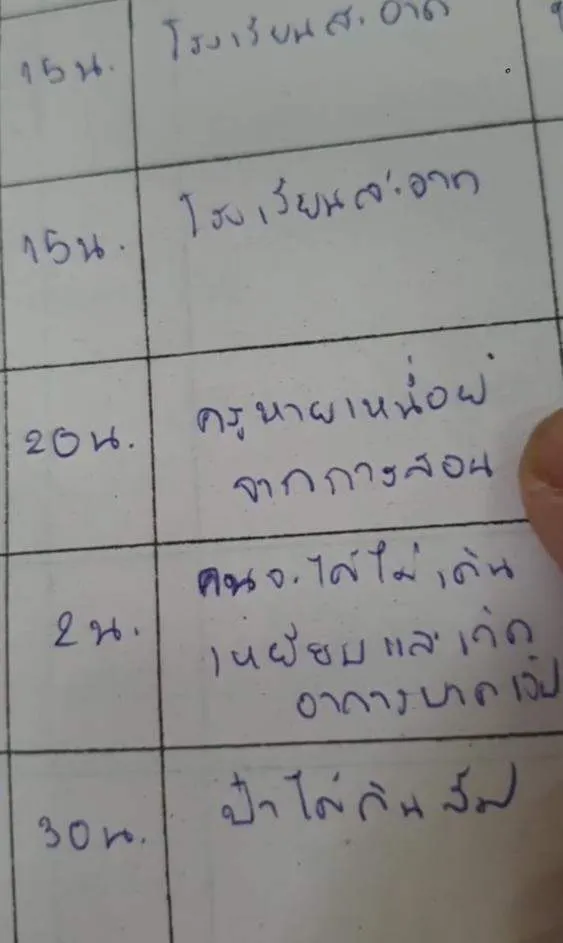 15 น. โรงเรียนสะอาด
15 น. โรงเรียนสะอาด
20 น. ครูหายเหนื่อย
จากการสอน
2 น. คนจะได้ไม่เดิน
เหยียบและเกิด
อาการบาดเจ็บ
30 น. ป้าได้กินส้ม